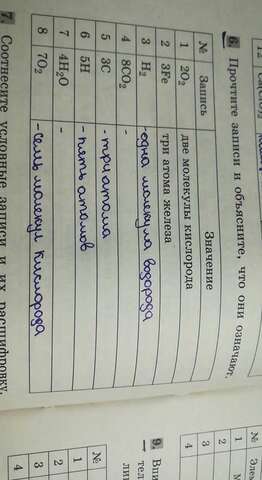 6. Прочтите записи и объясните, что они означают.
№ Запись Значение
1 2O₂ две молекулы кислорода
2 3Fe три атома железа
3 H₂ -одна молекула водорода
4 8CO₂ -
5 3C -три атома
6 5H -пять атомов
7 4H₂O -
8 7O₂ -семь молекул кислорода
7. Соотнесите условные записи и их расшифровку.
9. Впи
тел
№
1
2
3
4
№ Эле
1
2
3
4